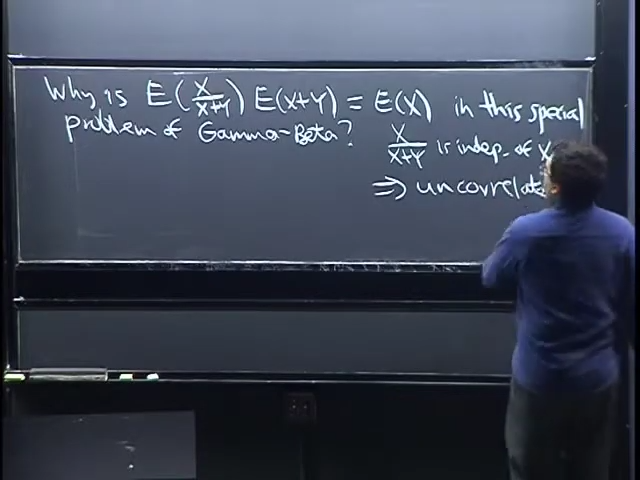 Why is E(X/(X+Y)) E(X+Y) = E(X) in this special
problem of Gamma-Beta?
X/(X+Y) is indep. of X
⇒ uncorrelate